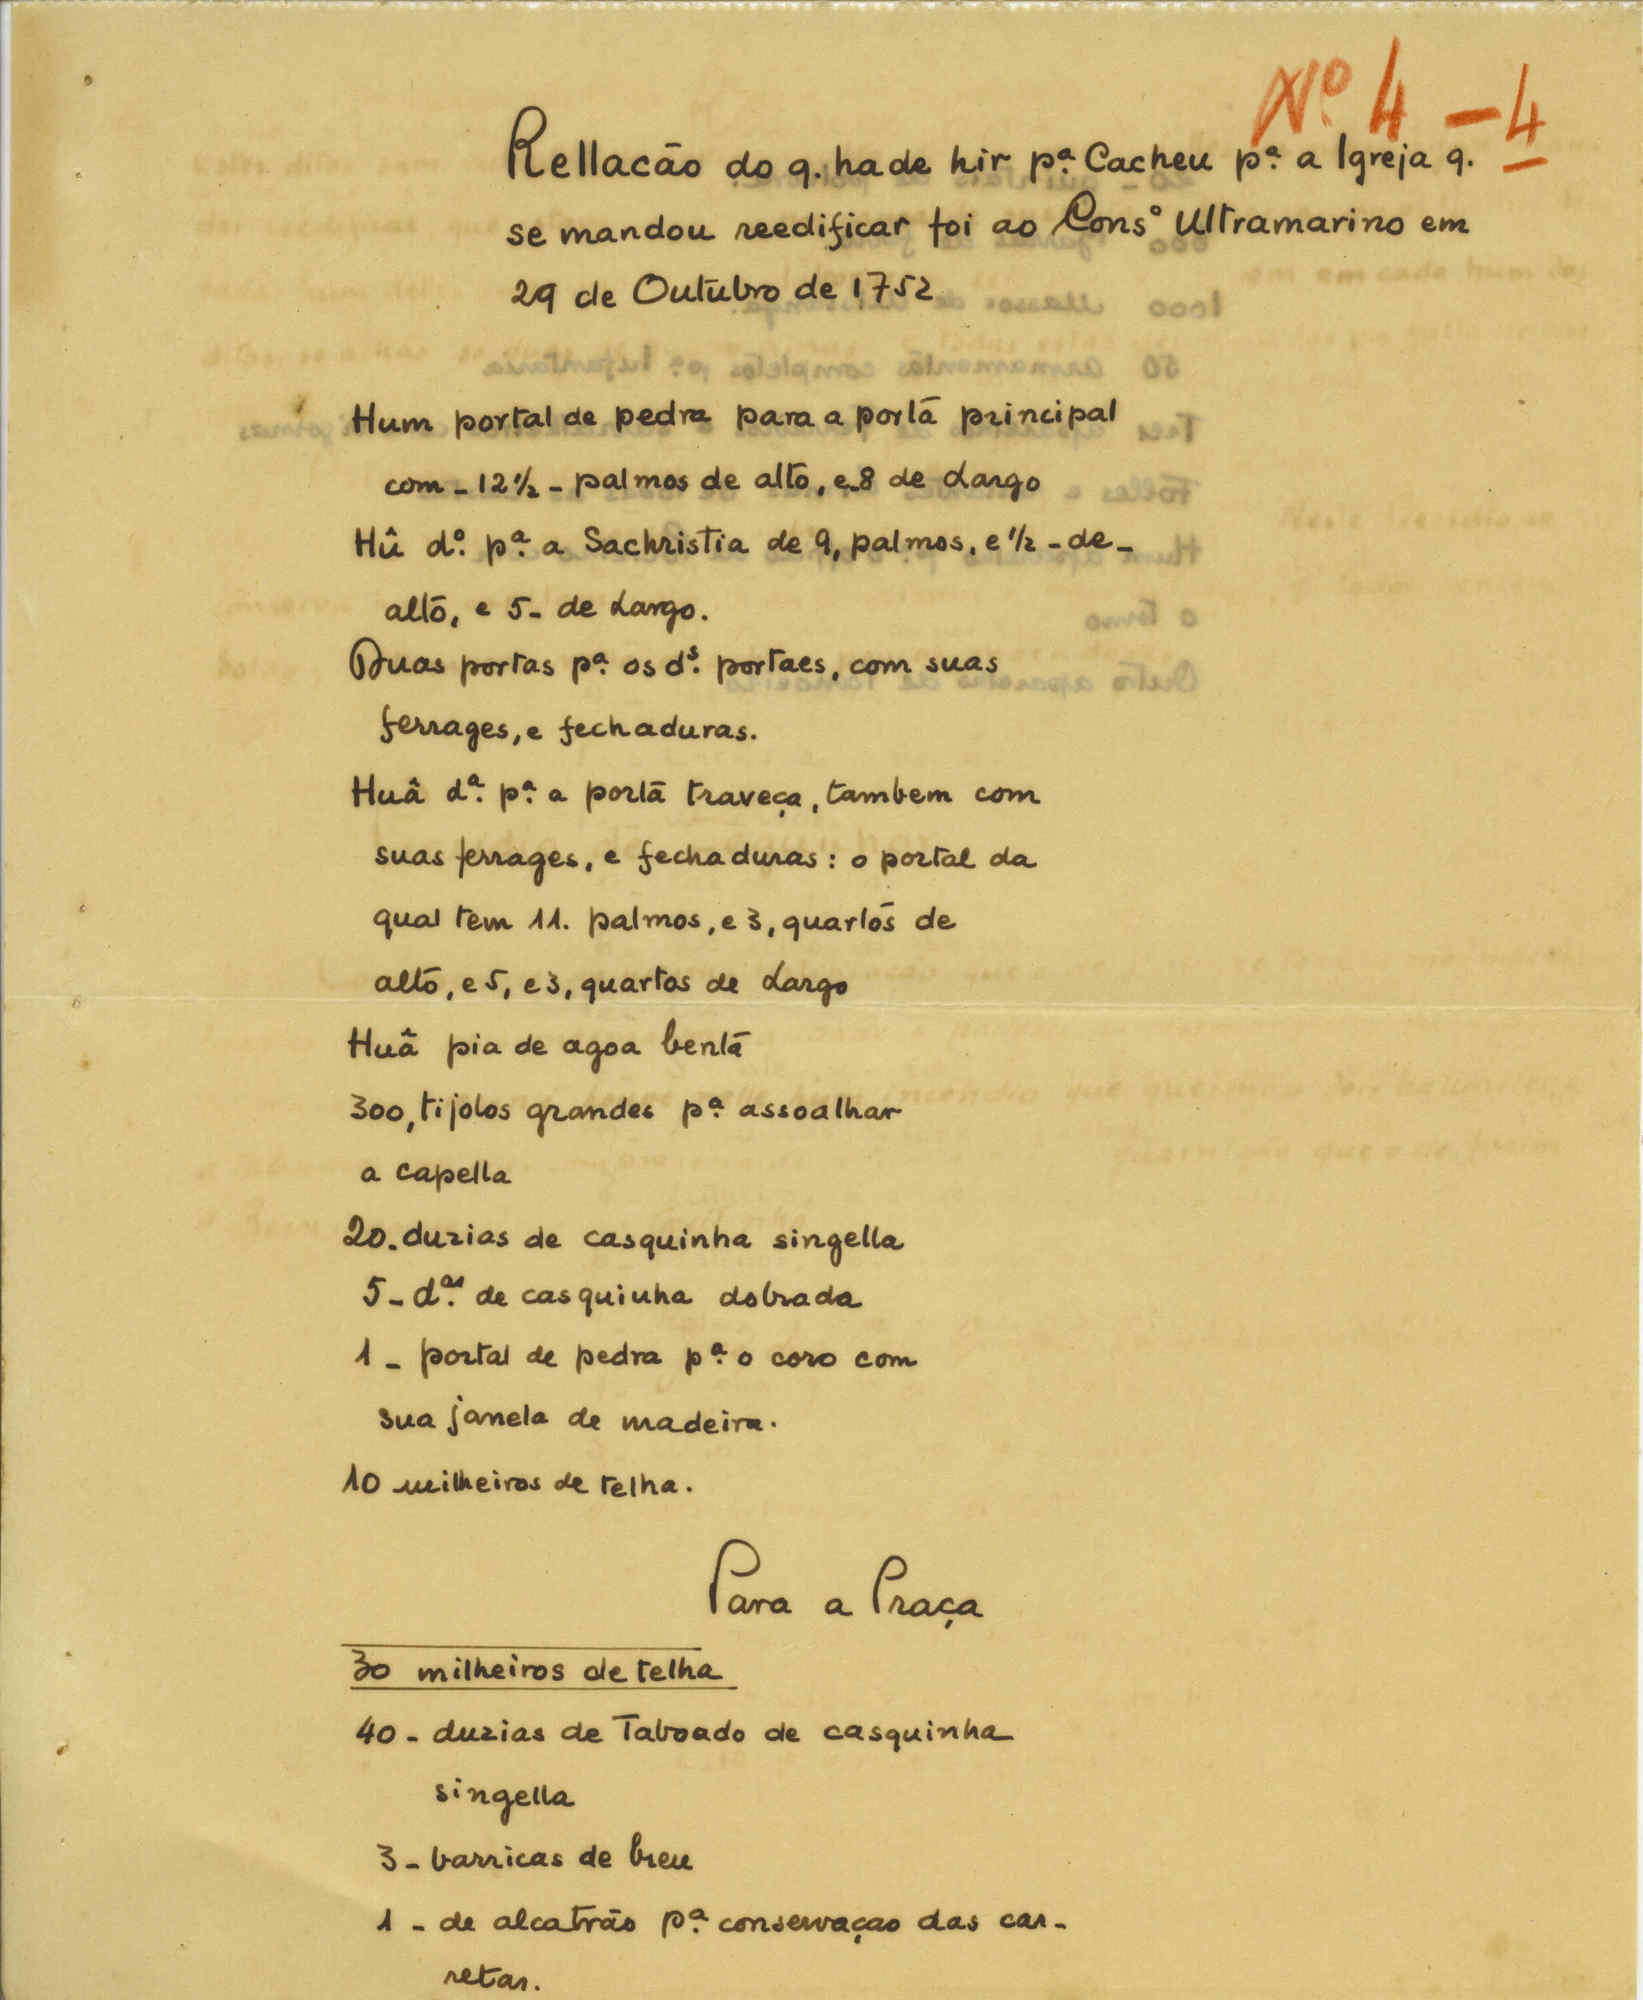 Nº 4 - 4
Rellacão do q. hade hir pª Cacheu pª a Igreja q.
se mandou reedificar foi ao Consº Ultramarino em
29 de Outubro de 1752
Hum portal de pedra para a portā principal
com - 12 1/2 - palmos de altō, e 8 de Largo
Hû dº. pª. a Sachristia de 9, palmos, e 1/2 - de -
altō, e 5 - de Largo.
Duas portas pª. os dˢ. portaes, com suas
ferrages, e fechaduras.
Huâ dª. pª. a portā traveça, tambem com
suas ferrages, e fechaduras : o portal da
qual tem 11. palmos, e 3, quartōs de
altō, e 5, e 3, quartos de Largo
Huâ pia de agoa bentā
300, tijolos grandes pª. assoalhar
a capella
20. duzias de casquinha singella
5 - dᵃˢ. de casquinha dobrada
1 - portal de pedra pª. o coro com
sua janela de madeira.
10 milheiros de telha.
Para a Praça
30 milheiros de telha
40 - duzias de Taboado de casquinha
singella
3 - barricas de breu
1 - de alcatrão pª. conservaçao das car-
retas.